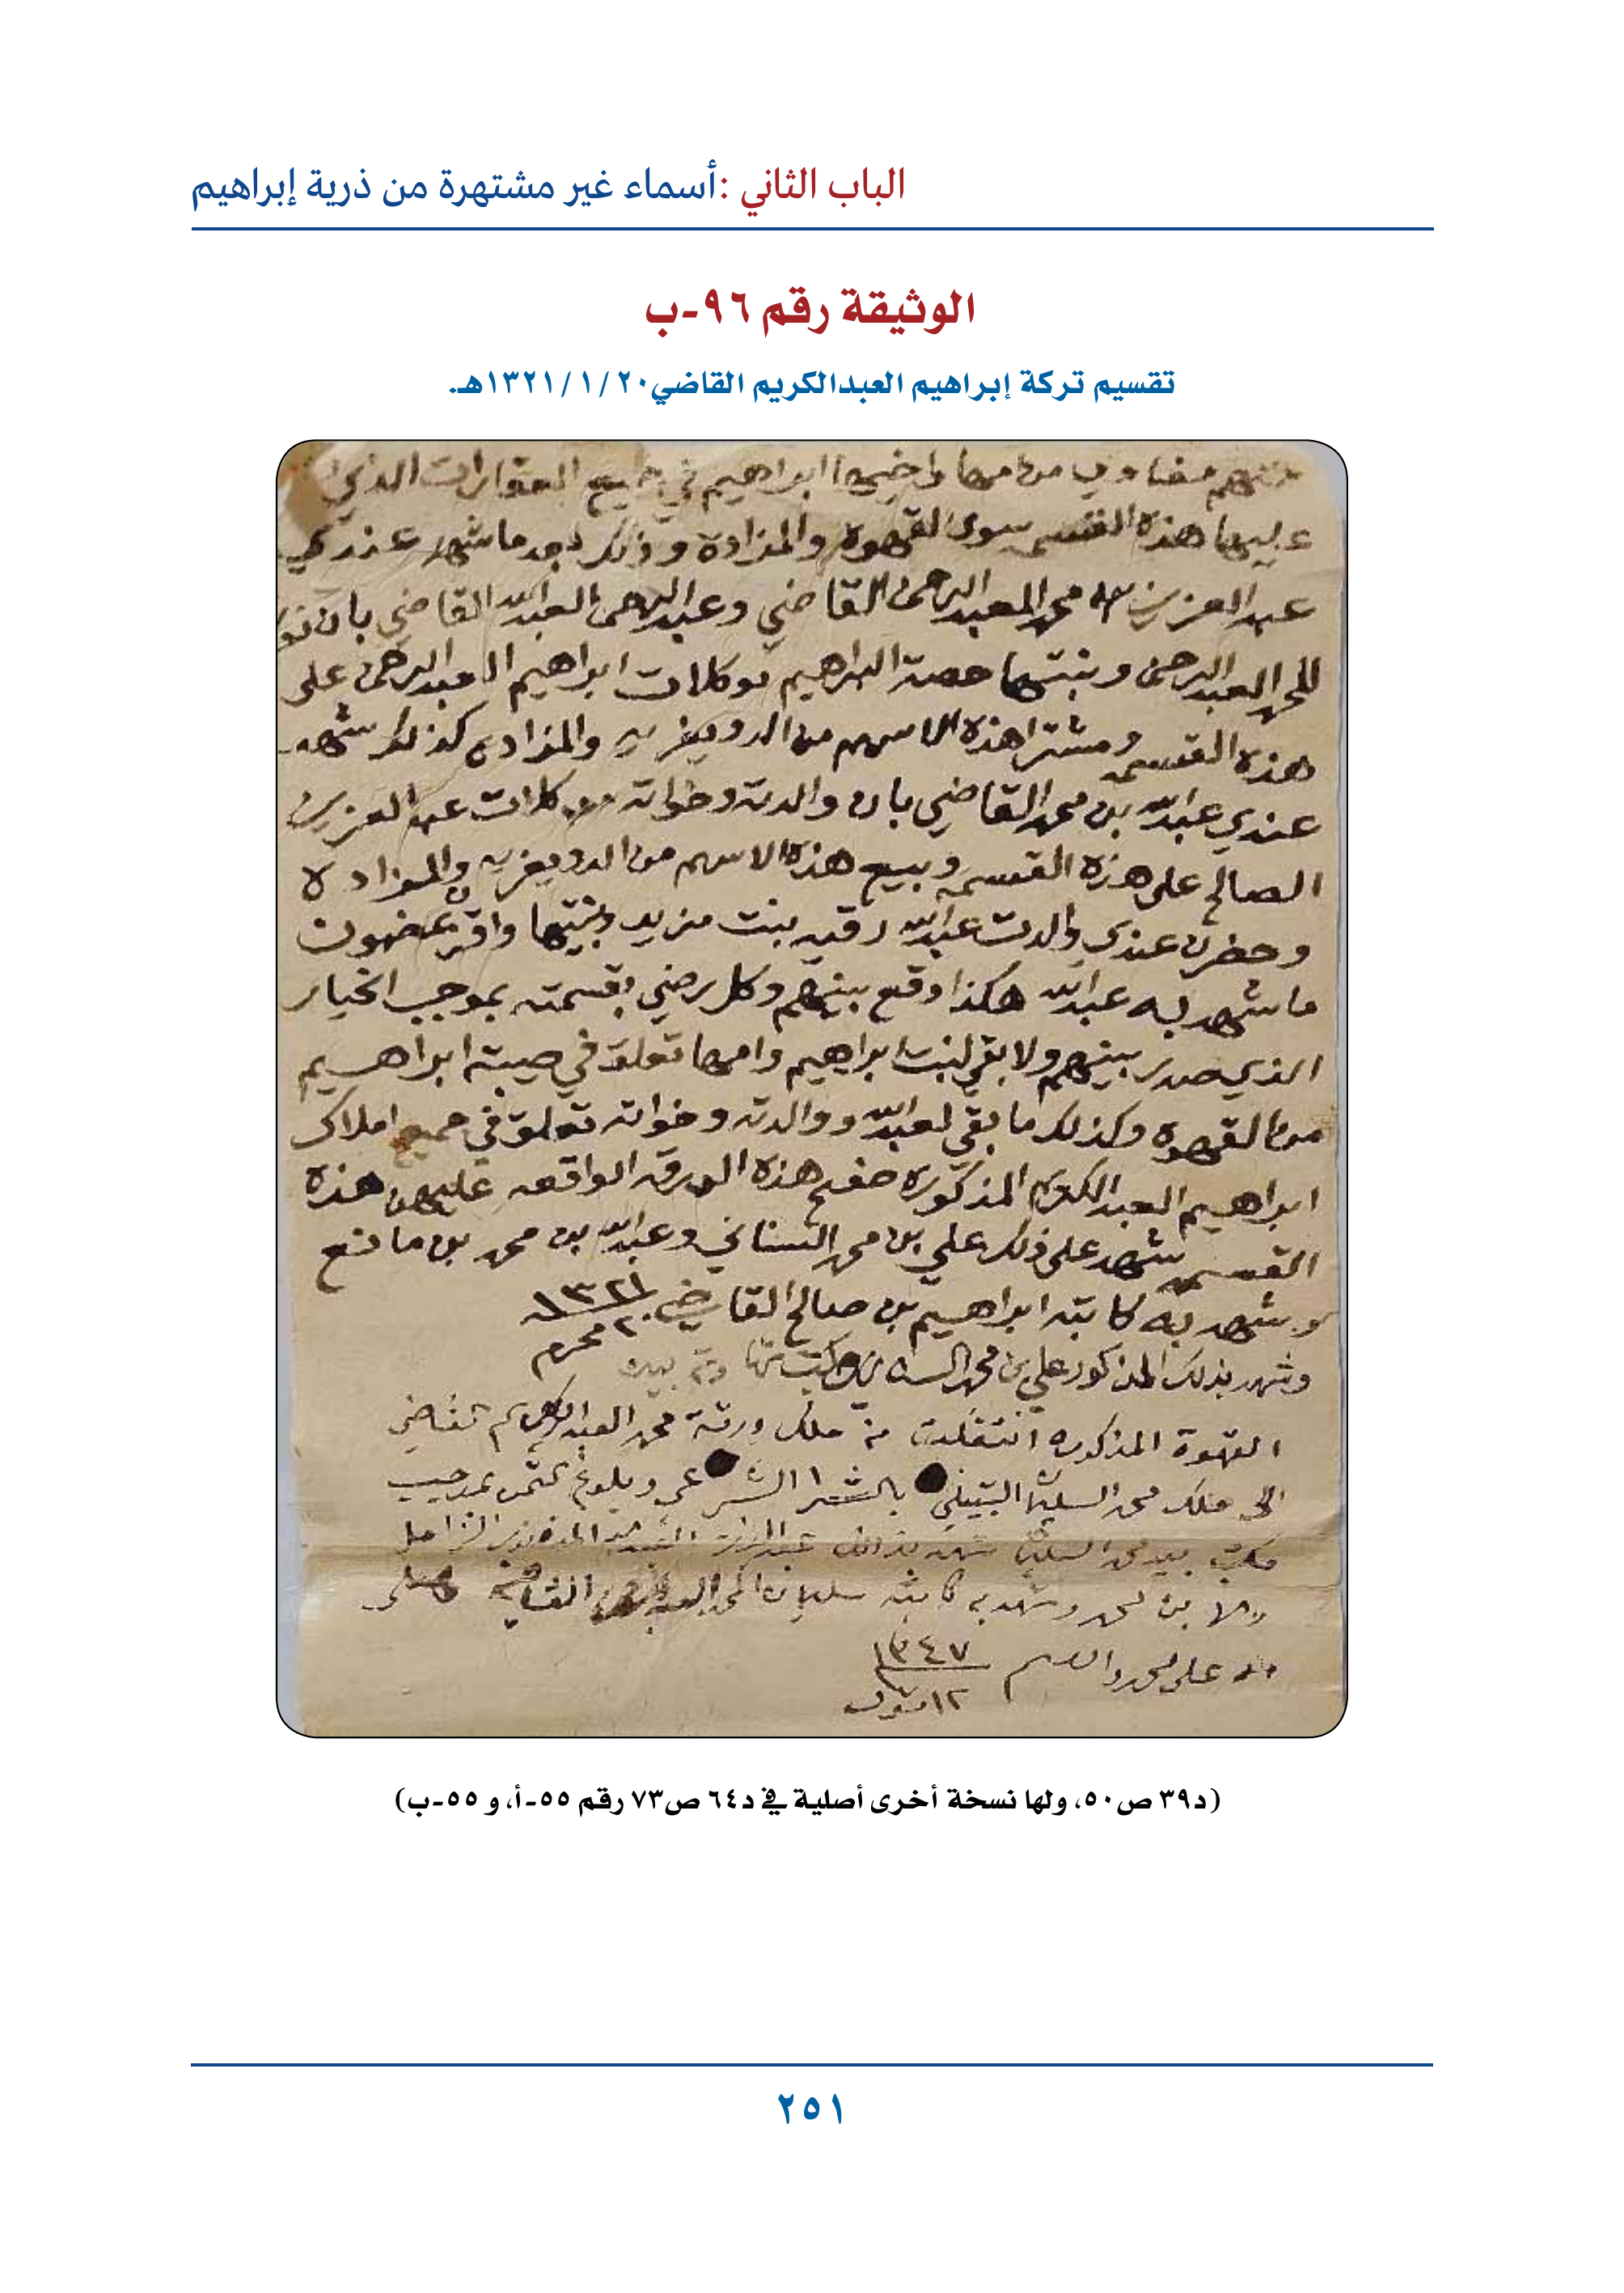 الباب الثاني: أسماء غير مشتهرة من ذرية إبراهيم
الوثيقة رقم ٩٦-ب
تقسيم تركة إبراهيم العبدالكريم القاضي ٢٠ /١ /١٣٢١هـ.
ابراهيم في جميع العقارات الذي
عليها هذه القسمه سوى القهوه والمزادة وذلك بعد ما شهد عندي
عبد العزيز محمد العبد الرحمن القاضي وعبد الرحمن العبد الله القاضي بان
المحمد العبد الرحمن وبنتها حصة ابراهيم موكلات ابراهيم العبد الرحمن على
هذه القسمه ومشترا هذه الاسهم من الدويغريه والمزاده كذلك شهد
عندي عبد الله بن محمد القاضي بان والدته وخواته موكلات عبد العزيز
الصالح على هذه القسمه وبيع هذه الاسهم من الدويغريه والمزاده
وحضرن عندي والدت عبد الله رقيه بنت مزيد وبنتيها واقرن عندي بمضمون
ما شهد به عبد الله هكذا وقع بينهم وكل رضي بقسمته بموجب الخيار
الذي صدر بينهم ولا بقي لبنت ابراهيم وامها تعلق في صيبة ابراهيم
من القهوه وكذلك ما بقي لعبد الله ووالدته وخواته تعلق في جميع املاك
ابراهيم العبد الكريم المذكوره صفح هذه الورقه الواقعه عليهن هذه
القسمه شهد على ذلك علي بن محمد السناني وعبد الله بن محمد بن مانع
وشهد به كاتبه ابراهيم بن صالح القاضي ١٣٢١
٢٠ محرم
وشهد بذلك المذكور علي بن محمد السناني
القهوة المذكوره انتقلت من ملك ورثة محمد العبد الكريم القاضي
الى ملك محمد السليمان الشبيلي بالشرا الشرعي وبلوغ الثمن بموجب
مكتب بيد محمد السليمان شهد بذلك عبد الرحمن
بن محمد وشهد به كاتبه سليمان المحمد القاضي وصلى
الله على محمد واله وسلم ١٣٤٧
١٢ شوال
(د٣٩ ص٥٠، ولها نسخة أخرى أصلية في د٦٤ ص٧٣ رقم ٥٥-أ، و ٥٥-ب)
٢٥١